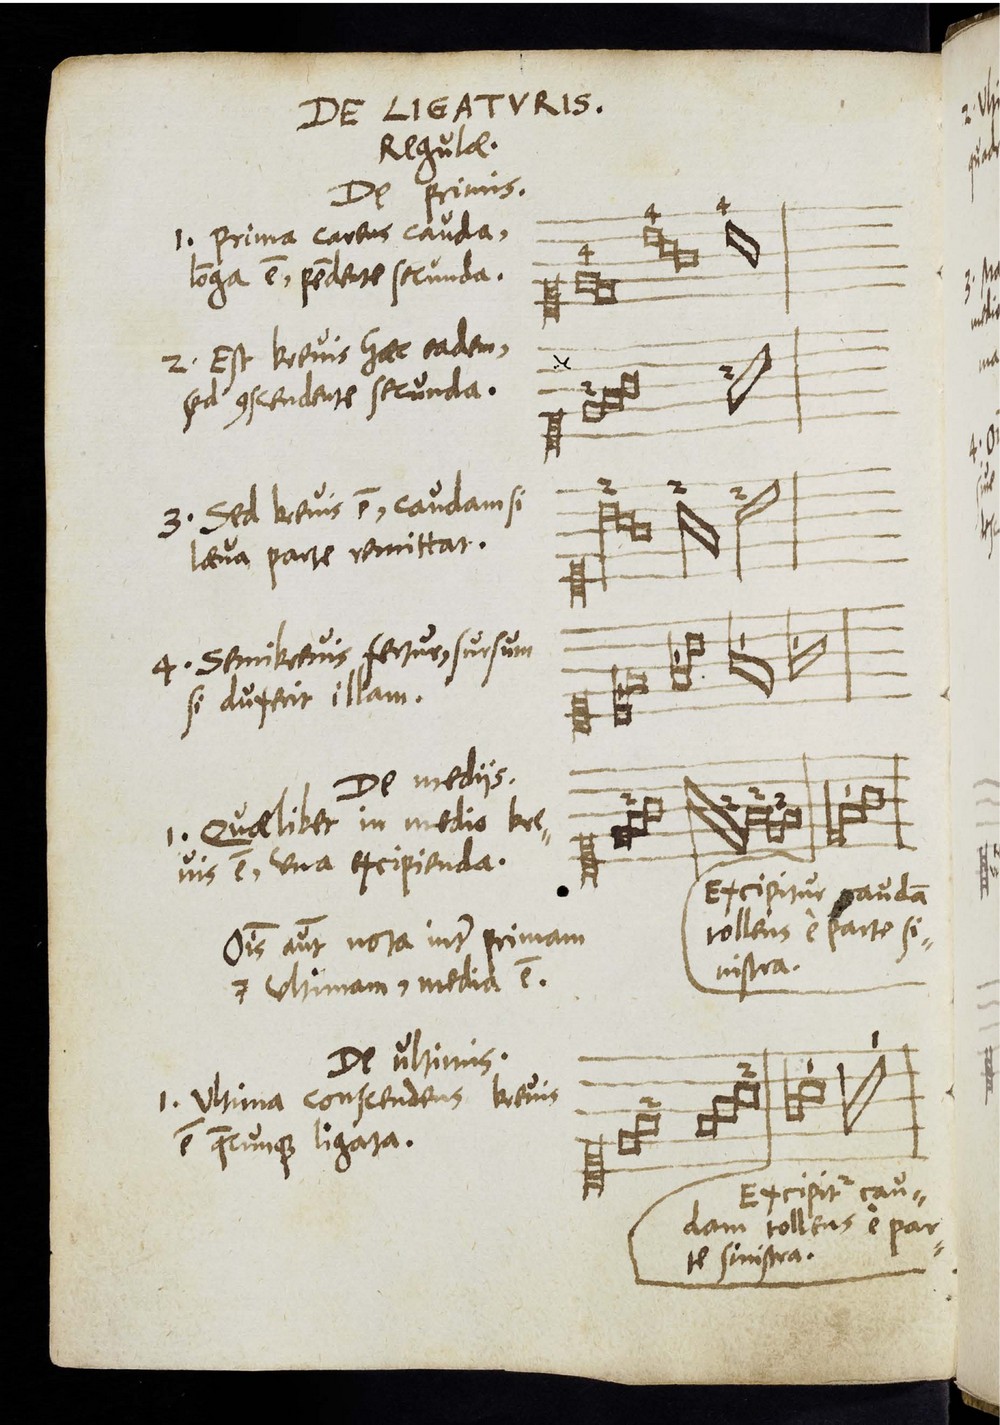 DE LIGATVRIS.
Regulæ.
De primis.
1. Prima carens cauda,
lōga ē, pēdente secunda.
4 4 4
2. Est brevis hæc eadem,
sed 9scendente secunda.
2 2
3. Sed brevis ē, caudam si
læva parte remittat.
2 2 2
4. Semibrevis fertur, sursum
si duxerit illam.
1 1 1 1
De medijs.
1. Quælibet in medio bre„
vis ē, una excipienda.
2 2 2 2 1
Excipitur caudā
tollens è parte si„
nistra.
Oīs aūt nota int̄ primam
⁊ ultimam, media ē.
De ultimis.
1. Ultima conscendens brevis
ē q̄cunqꝫ ligata.
2 2 1 1
Excipit᷑ cau„
dam tollens è par„
te sinistra.